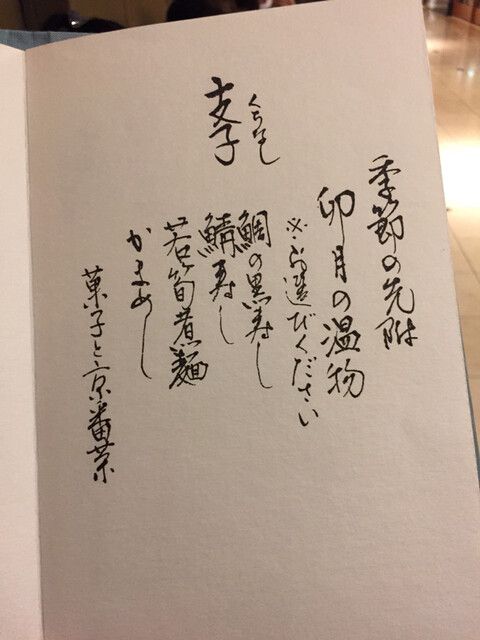 支子
くちなし
季節の先附
卯月の温物
※お選びください
鯛の黒寿し
鯖寿し
若筍煮麺
かまめし
菓子と京番茶